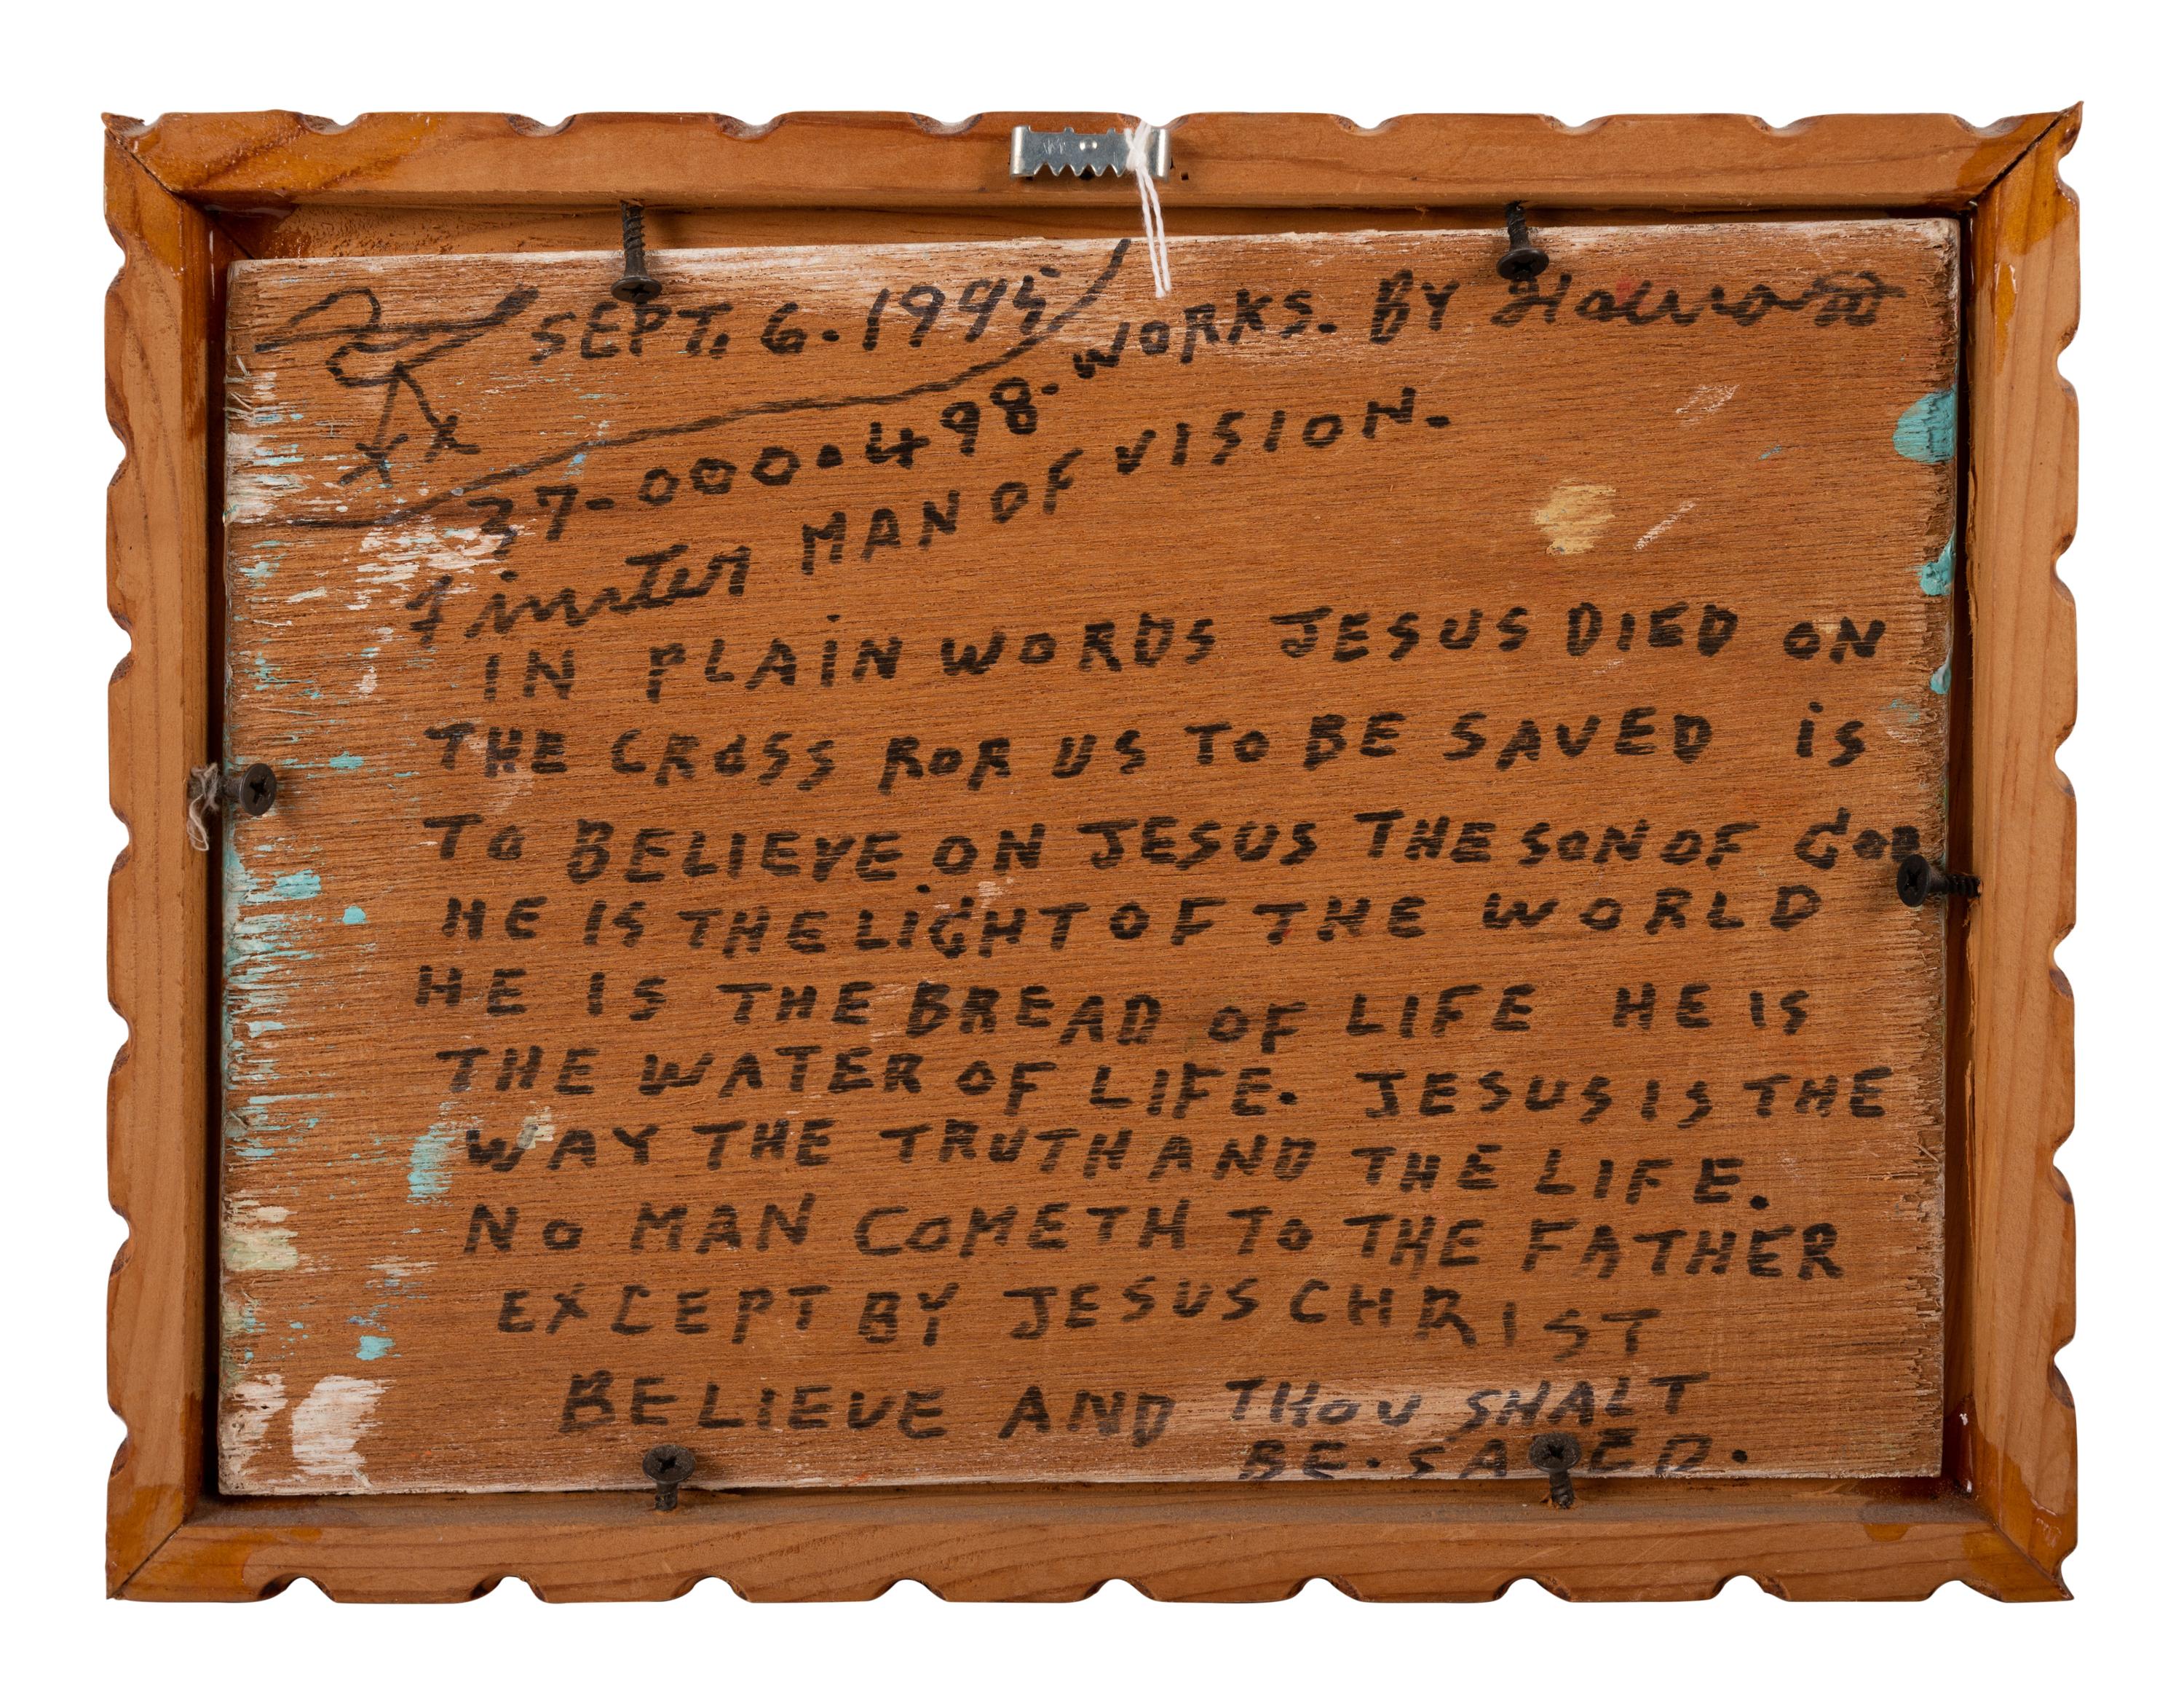 SEPT. 6. 1995
37-000.498-WORKS. BY Howard
Finster MAN OF VISION.
IN PLAIN WORDS JESUS DIED ON
THE CROSS ROR US TO BE SAVED is
TO BELIEVE ON JESUS THE SON OF GOD
HE IS THE LiGHT OF THE WORLD
HE IS THE BREAD OF LIFE HE IS
THE WATER OF LIFE. JESUS IS THE
WAY THE TRUTH AND THE LIFE.
NO MAN COMETH TO THE FATHER
EXCEPT BY JESUS CHRIST
BELIEVE AND THOU SHALT
BE. SAVED.